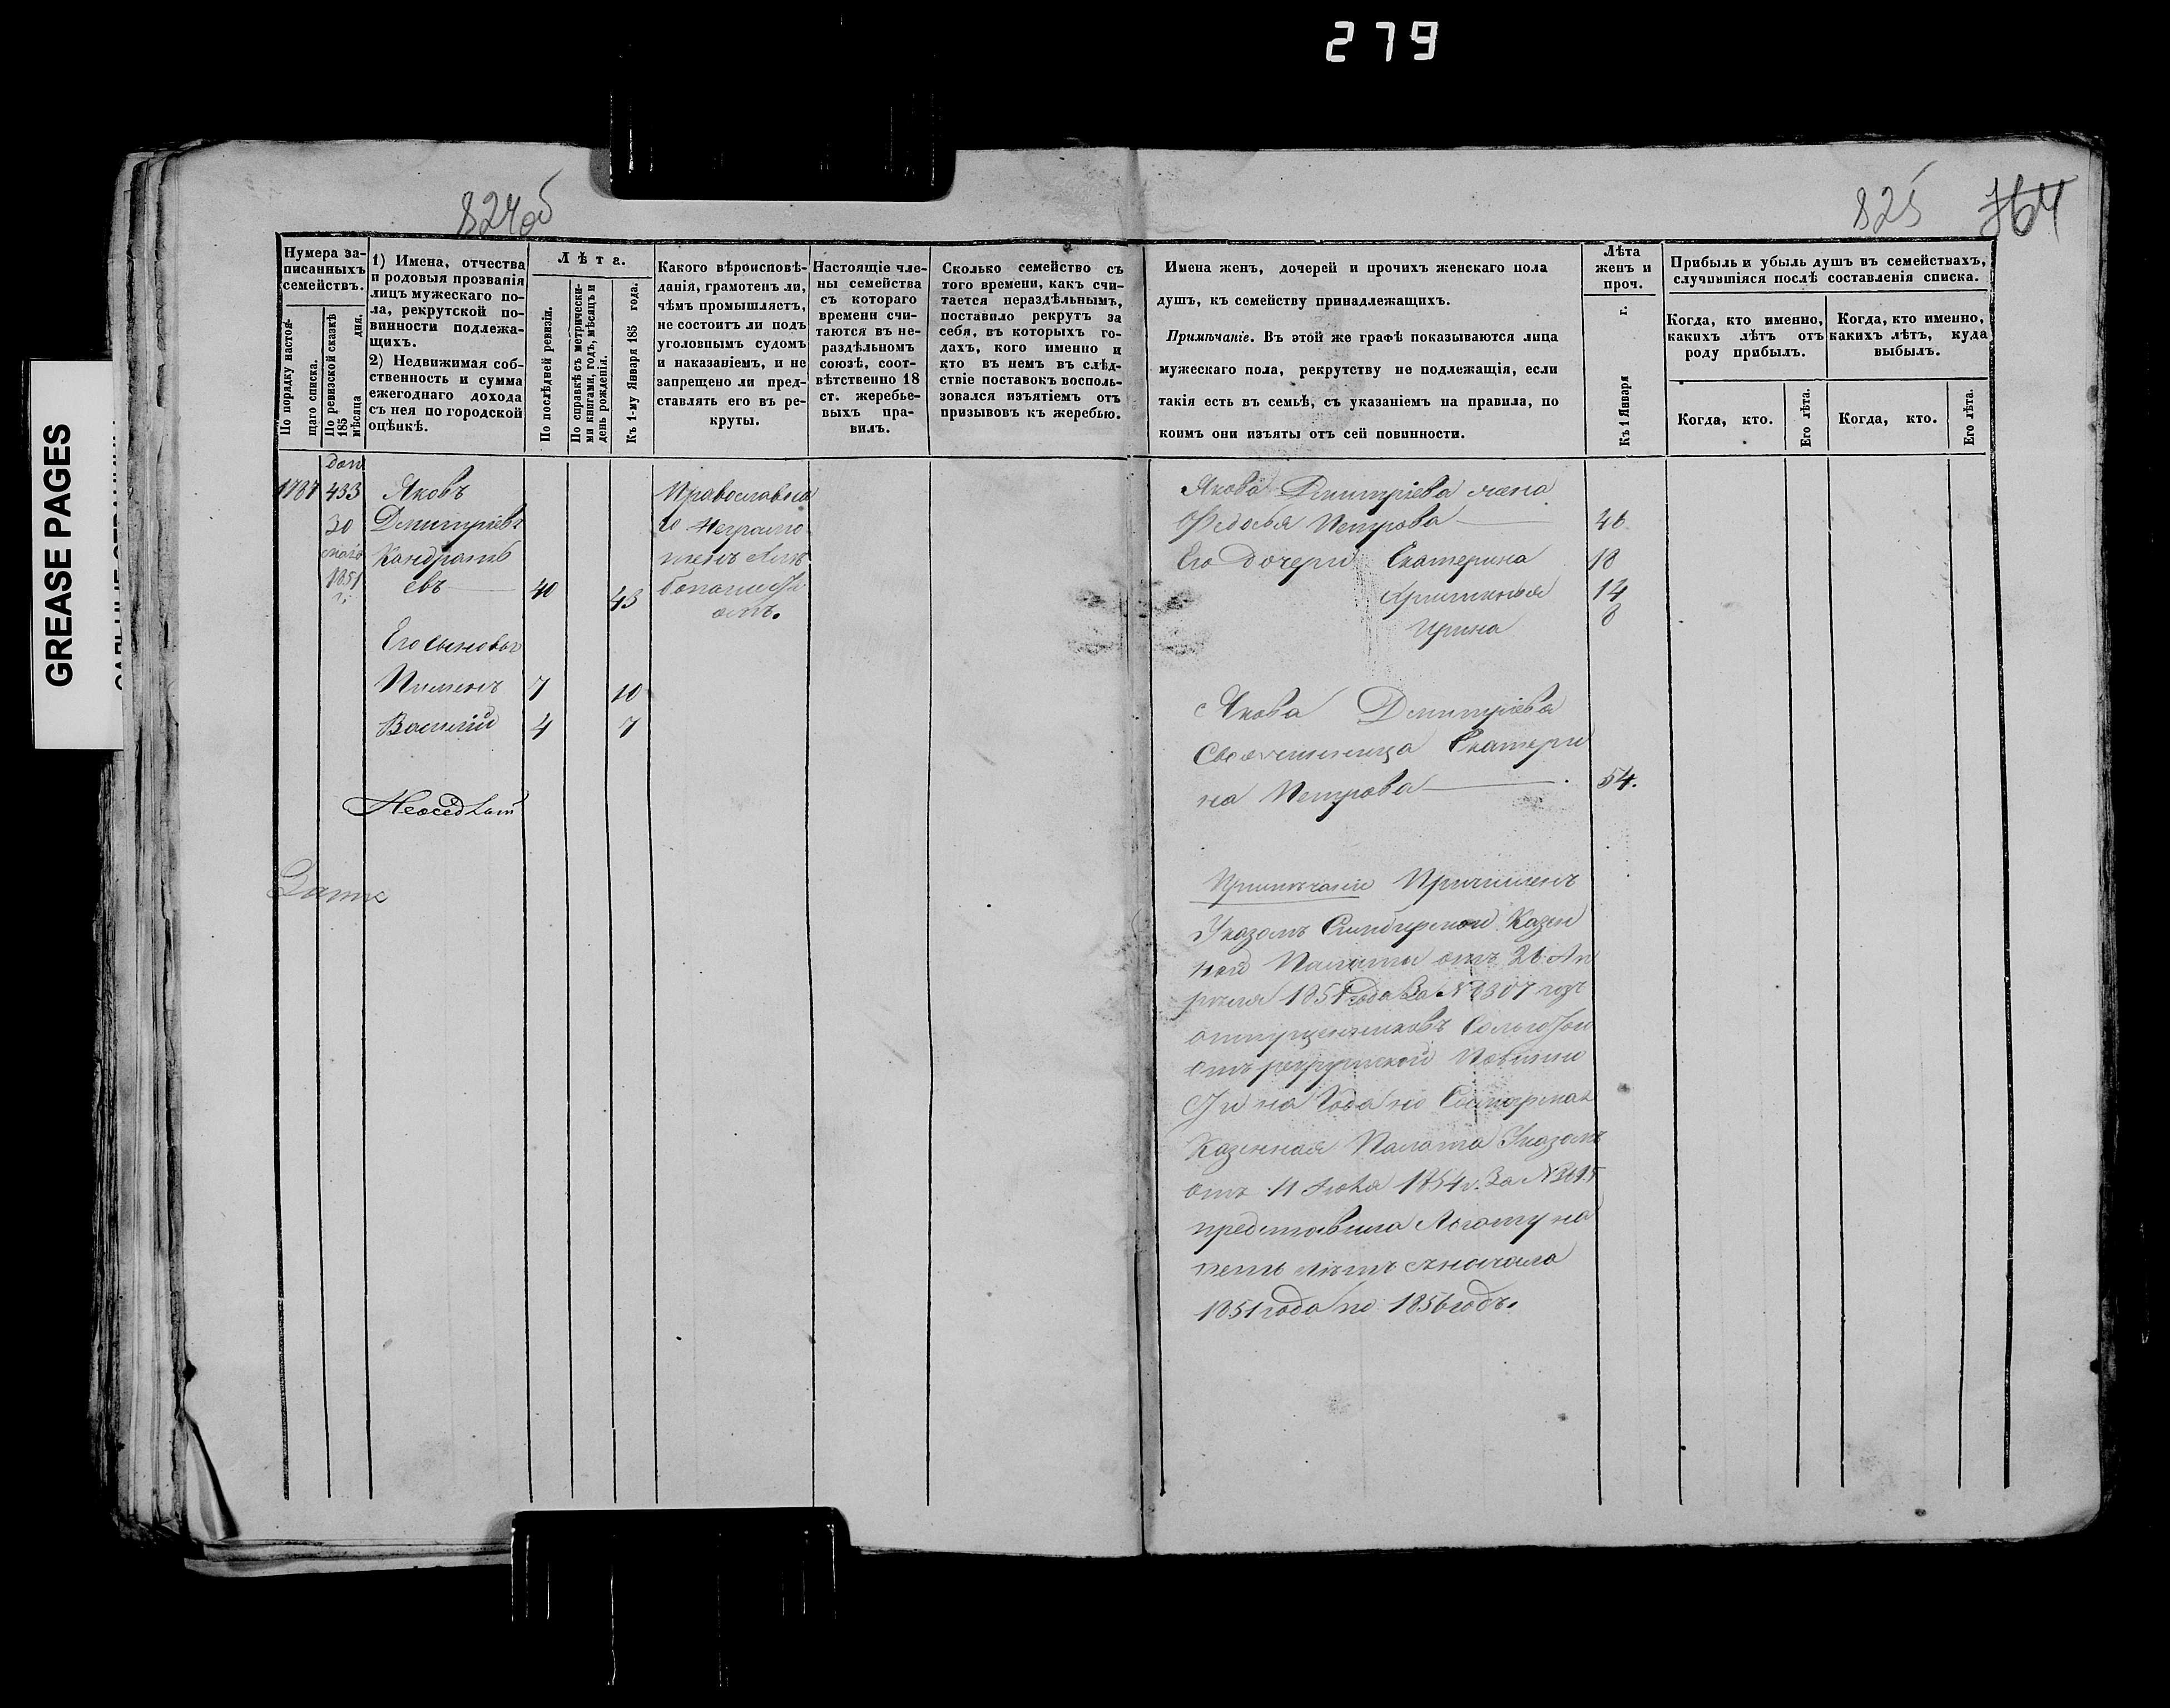 279
GREASE PAGES
824об
825
764
Нумера за-
писанныхъ
семействъ.
По порядку настоя-
щаго списка.
По ревизской сказкѣ
185 дня.
мѣсяца
1) Имена, отчества
и родовыя прозванія
лицъ мужескаго по-
ла, рекрутской по-
винности подлежа-
щихъ.
2) Недвижимая соб-
ственность и сумма
ежегоднаго дохода
съ нея по городской
оцѣнкѣ.
Лѣта.
По послѣдней ревизіи.
По справкѣ съ метрически-
ми книгами, годъ, мѣсяцъ и
день рожденія.
Къ 1-му Января 185 года.
Какого вѣроисповѣ-
данія, грамотенъ ли,
чѣмъ промышляетъ,
не состоитъ ли подъ
уголовнымъ судомъ
и наказаніемъ, и не
запрещено ли пред-
ставлять его въ ре-
круты.
Настоящіе чле-
ны семейства
съ котораго
времени счи-
таются въ не-
раздѣльномъ
союзѣ, соот-
вѣтственно 18
ст. жеребье-
выхъ пра-
вилъ.
Сколько семейство съ
того времени, какъ счи-
тается нераздѣльнымъ,
поставило рекрутъ за
себя, въ которыхъ го-
дахъ, кого именно и
кто въ немъ въ слѣд-
ствіе поставокъ восполь-
зовался изъятіемъ отъ
призывовъ къ жеребью.
Имена женъ, дочерей и прочихъ женскаго пола
душъ, къ семейству принадлежащихъ.
Примѣчаніе. Въ этой же графѣ показываются лица
мужескаго пола, рекрутству не подлежащія, если
такія есть въ семьѣ, съ указаніемъ на правила, по
коимъ они изъяты отъ сей повинности.
Лѣта
женъ и
проч.
Къ 1 Января г.
Прибыль и убыль душъ въ семействахъ,
случившіяся послѣ составленія списка.
Когда, кто именно,
какихъ лѣтъ отъ
роду прибылъ.
Когда, кто именно,
какихъ лѣтъ, куда
выбылъ.
Когда, кто.
Его лѣта.
Когда, кто.
Его лѣта.
доп
1787 433 Яковъ
30 Дмитріевъ
маія Кандратъ
1851 евъ 40 43
Его сыновья
Пименъ 7 10
Василій 4 7
Православна
го Неграмо
тенъ
Якова Дмитріева жена
Федосья Петрова 46
Его дочери Екатерина 18
14
Ирина 8
Якова Дмитріева
Своячинница Екатери
на Петрова 54.
Примѣчаніе Причисленъ
Указомъ Симбирской Казен
ной Палаты отъ 26 Ап
рѣля 1851 года За № 8307 изъ
отпущенниковъ
отъ рекрутской Повинно
Казенная Палата Указомъ
отъ 11 1854 г. За №
предоставила льготу на
лѣтъ съ начала
1851 года по 1856 годъ.